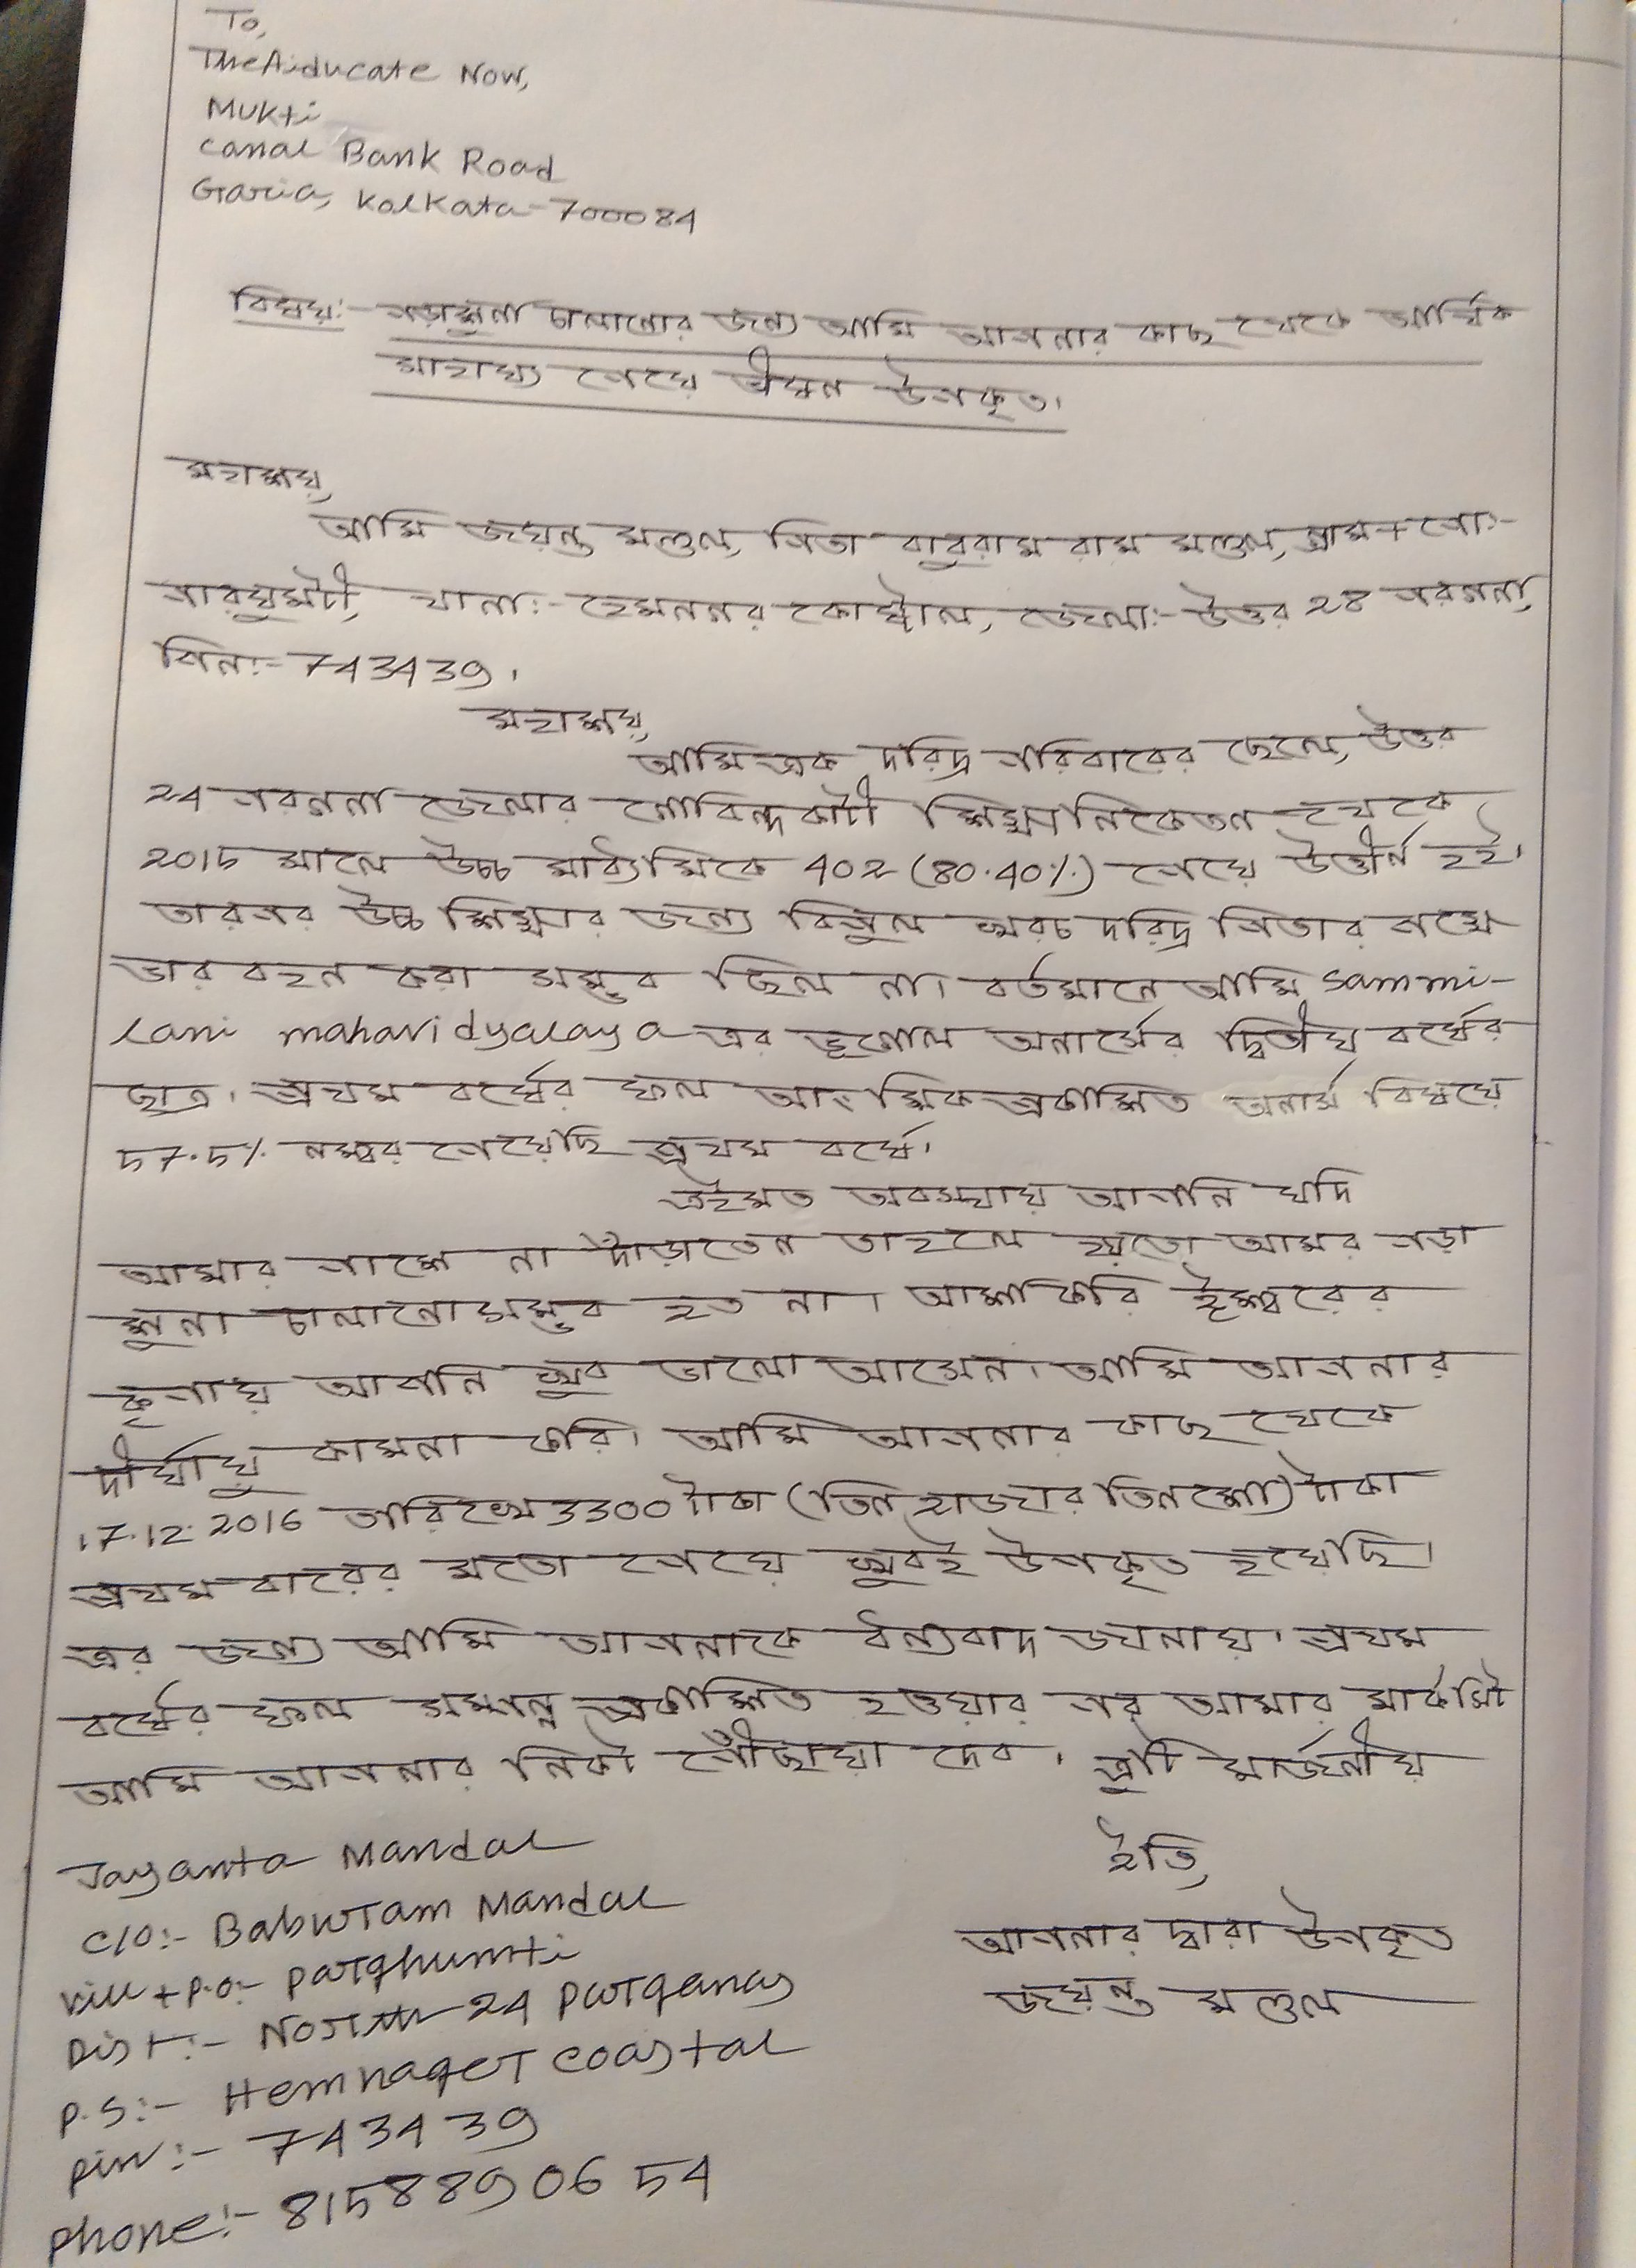 To,
The Aiducate Now,
Mukti
Canal Bank Road
Garia, Kolkata-700084
বিষয়:- পড়াশুনা চালানোর জন্য আমি আপনার কাছ থেকে আর্থিক
সাহায্য পেয়ে ভীষন উপকৃত।
মহাশয়,
আমি জয়ন্ত মণ্ডল, পিতা বাবুরাম রাম মণ্ডল, গ্রাম+পো:-
পারঘুমটী, থানা:- হেমনগর কোষ্টাল, জেলা:- উত্তর 24 পরগনা,
পিন:- 743439।
মহাশয়,
আমি এক দরিদ্র পরিবারের ছেলে, উত্তর
24 পরগনা জেলার গোবিন্দকাটী শিক্ষানিকেতন থেকে
2015 সালে উচ্চ মাধ্যমিকে 402 (80.40%) পেয়ে উত্তীর্ন হই।
তারপর উচ্চ শিক্ষার জন্য বিপুল খরচ দরিদ্র পিতার পক্ষে
ভার বহন করা সম্ভব ছিল না। বর্তমানে আমি Sammi-
lani mahavidyalaya এর ভূগোল অনার্সের দ্বিতীয় বর্ষের
ছাত্র। প্রথম বর্ষের ফল আংশিক প্রকাশিত অনার্স বিষয়ে
57.5% নম্বর পেয়েছি প্রথম বর্ষে।
এইমত অবস্থায় আপনি যদি
আমার পাশে না দাঁড়াতেন তাহলে হয়তো আমর পড়া
শুনা চালানো সম্ভব হত না। আশাকরি ঈশ্বরের
কৃপায় আপনি খুব ভালো আসেন। আমি আপনার
দীর্ঘায়ু কামনা করি। আমি আপনার কাছ থেকে
17.12.2016 তারিখে 3300 টাকা (তিন হাজার তিনশো) টাকা
প্রথম বারের মতো পেয়ে খুবই উপকৃত হয়েছি।
এর জন্য আমি আপনাকে ধন্যবাদ জানায়। প্রথম
বর্ষের ফল সম্পন্ন প্রকাশিত হওয়ার পর আমার মার্কসিট
আমি আপনার নিকট পৌঁছায়া দেব। ত্রুটি মার্জনীয়
ইতি,
আপনার দ্বারা উপকৃত
জয়ন্ত মণ্ডল
Jayanta Mandal
C/O:- Baburam Mandal
Vill + P.O:- Parghumti
Dist:- North 24 Parganas
P.S:- Hemnager Coastal
Pin:- 743439
Phone:- 8158890654